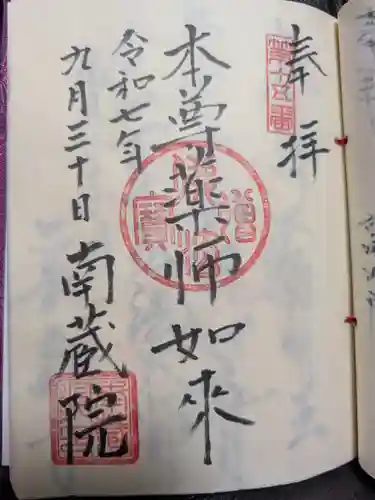 奉拝
本尊薬師如來
令和七年
九月三十日
南蔵院